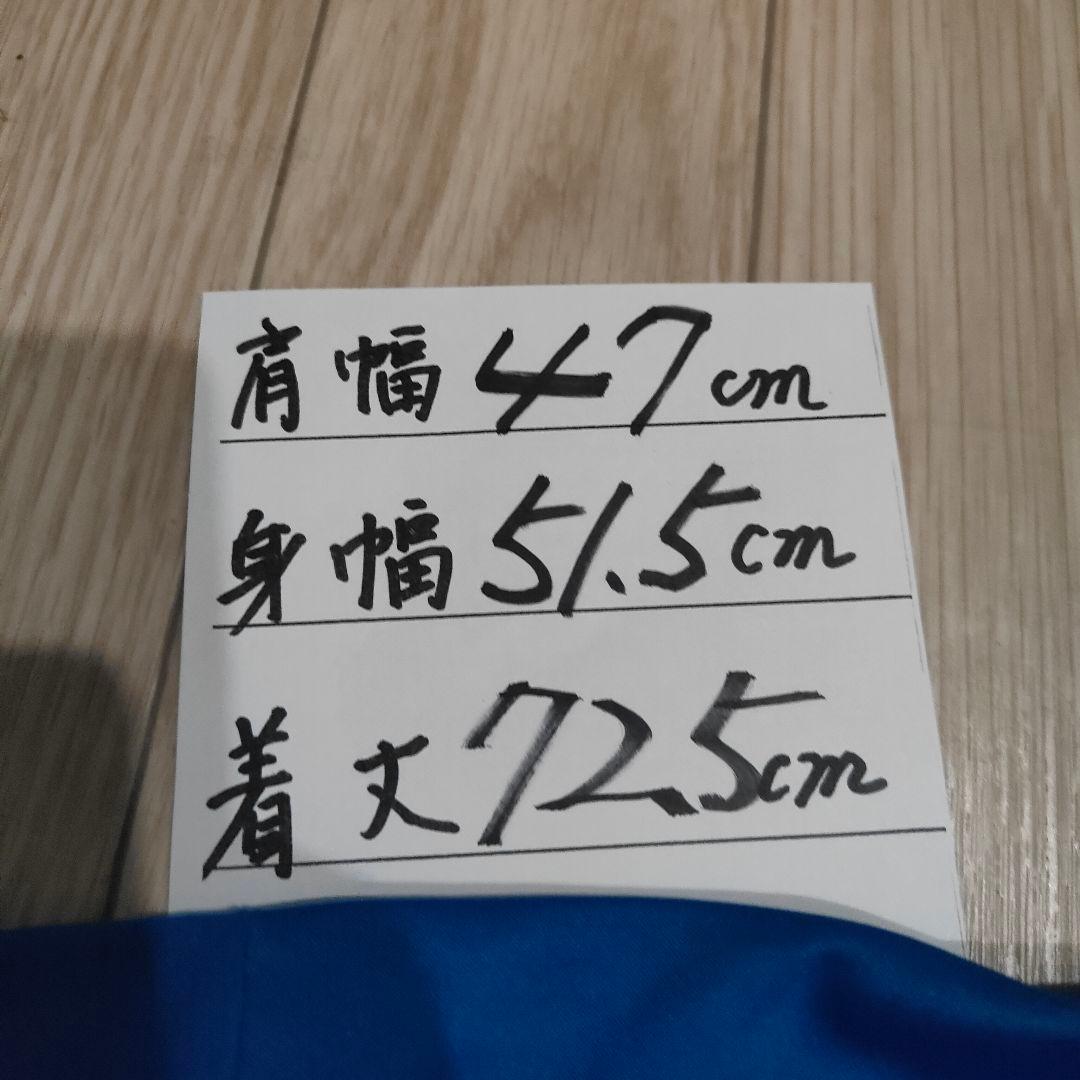 肩幅47cm
身幅51.5cm
着丈72.5cm